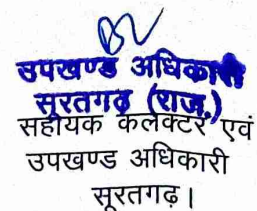 उपखण्ड अधिकारी
सूरतगढ़ (राज.)
सहायक कलेक्टर एवं
उपखण्ड अधिकारी
सूरतगढ़।